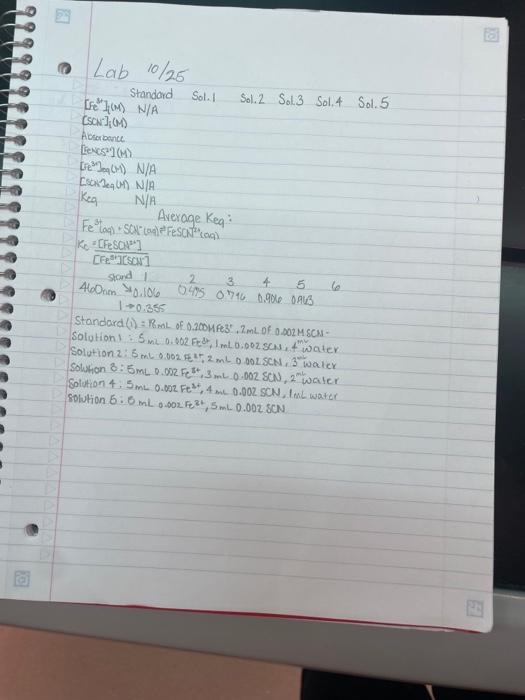 Lab 10/25
Standard Sol.1 Sol.2 Sol.3 Sol.4 Sol.5
[Fe³⁺]i(M) N/A
[SCN⁻]i(M)
Absorbance
[FeNCS²⁺](M)
[Fe³⁺]eq(M) N/A
[SCN⁻]eq(M) N/A
Keq N/A
Average Keq:
Fe³⁺(aq) + SCN⁻(aq) ⇌ FeSCN²⁺(aq)
Kc = [FeSCN²⁺]
[Fe³⁺][SCN⁻]
stand 1 2 3 4 5 6
460nm → 0.106 0.495 0.746 0.906
1 → 0.355
Standard(1) = 18mL of 0.200M Fe3⁺, 2mL of 0.002M SCN-
Solution 1: 5mL 0.002 Fe3⁺, 1mL 0.002 SCN, 4mL water
Solution 2: 5mL 0.002 Fe3⁺, 2mL 0.002 SCN, 3mL water
Solution 3: 5mL 0.002 Fe³⁺, 3mL 0.002 SCN, 2mL water
Solution 4: 5mL 0.002 Fe³⁺, 4mL 0.002 SCN, 1mL water
Solution 5: 5mL 0.002 Fe³⁺, 5mL 0.002 SCN